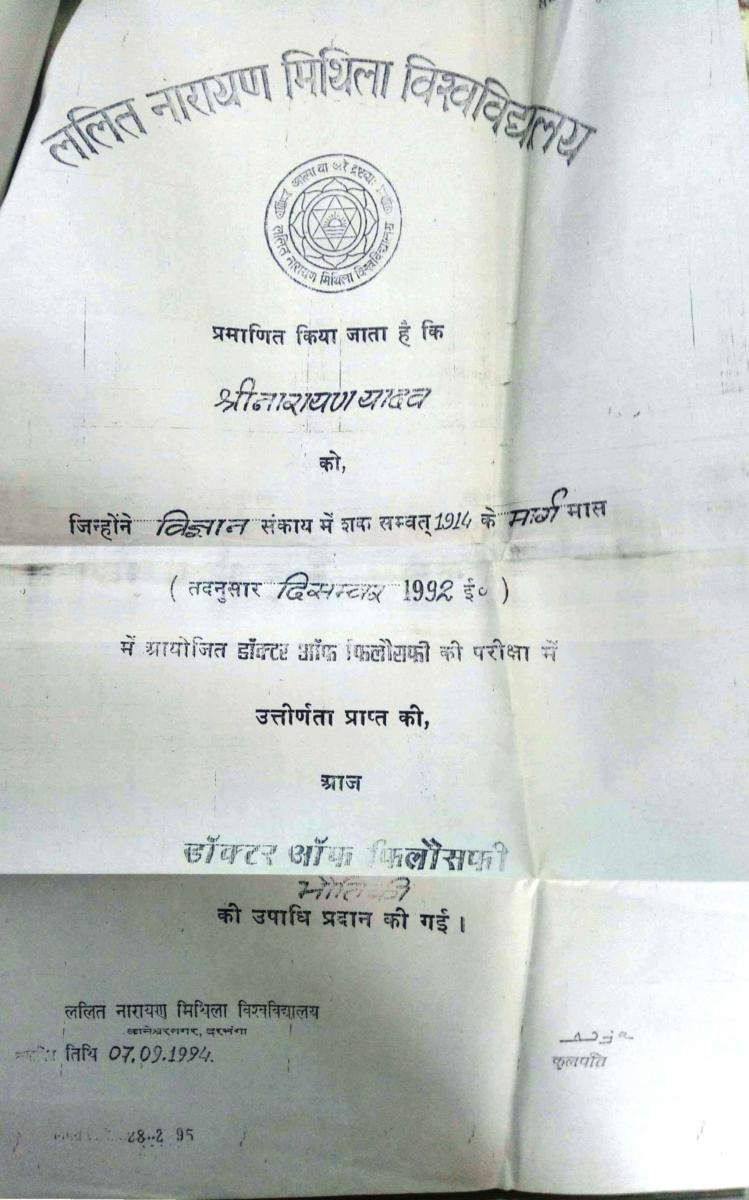 ललित नारायण मिथिला विश्वविद्यालय
आत्मा वा अरे द्रष्टव्यः
ललित नारायण मिथिला विश्वविद्यालय
प्रमाणित किया जाता है कि
श्रीनारायण यादव
को,
जिन्होंने विज्ञान संकाय में शक सम्वत् 1914 के मार्ग मास
( तदनुसार दिसम्बर 1992 ई० )
में आयोजित डॉक्टर ऑफ फिलौसफी की परीक्षा में
उत्तीर्णता प्राप्त की,
आज
डॉक्टर ऑफ फिलौसफी
भौतिकी
की उपाधि प्रदान की गई।
ललित नारायण मिथिला विश्वविद्यालय
कामेश्वरनगर, दरभंगा
तिथि 07.09.1994.
कुलपति
95